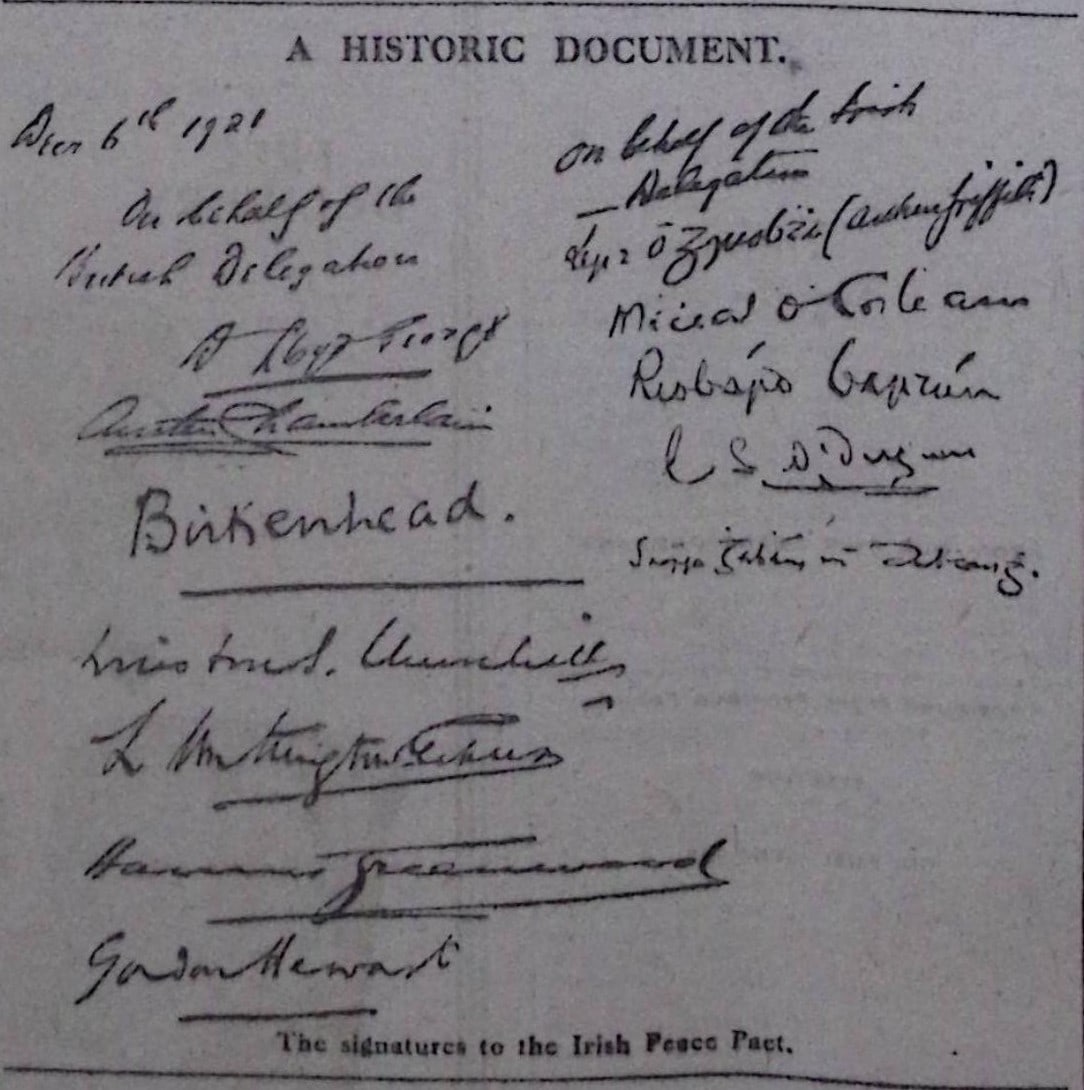 A HISTORIC DOCUMENT.
Decr 6th 1921
On behalf of the
British Delegation
D Lloyd George
Austen Chamberlain
Birkenhead.
Winston S. Churchill
L Worthington-Evans
Hamar Greenwood
Gordon Hewart
On behalf of the Irish
Delegation
Art Ó Gríobhtha (Arthur Griffith)
Micheál Ó Coileain
Riobárd Bartún
E S Ó Dugain
Seórsa Ghabháin uí Dhubhthaigh.
The signatures to the Irish Peace Pact.